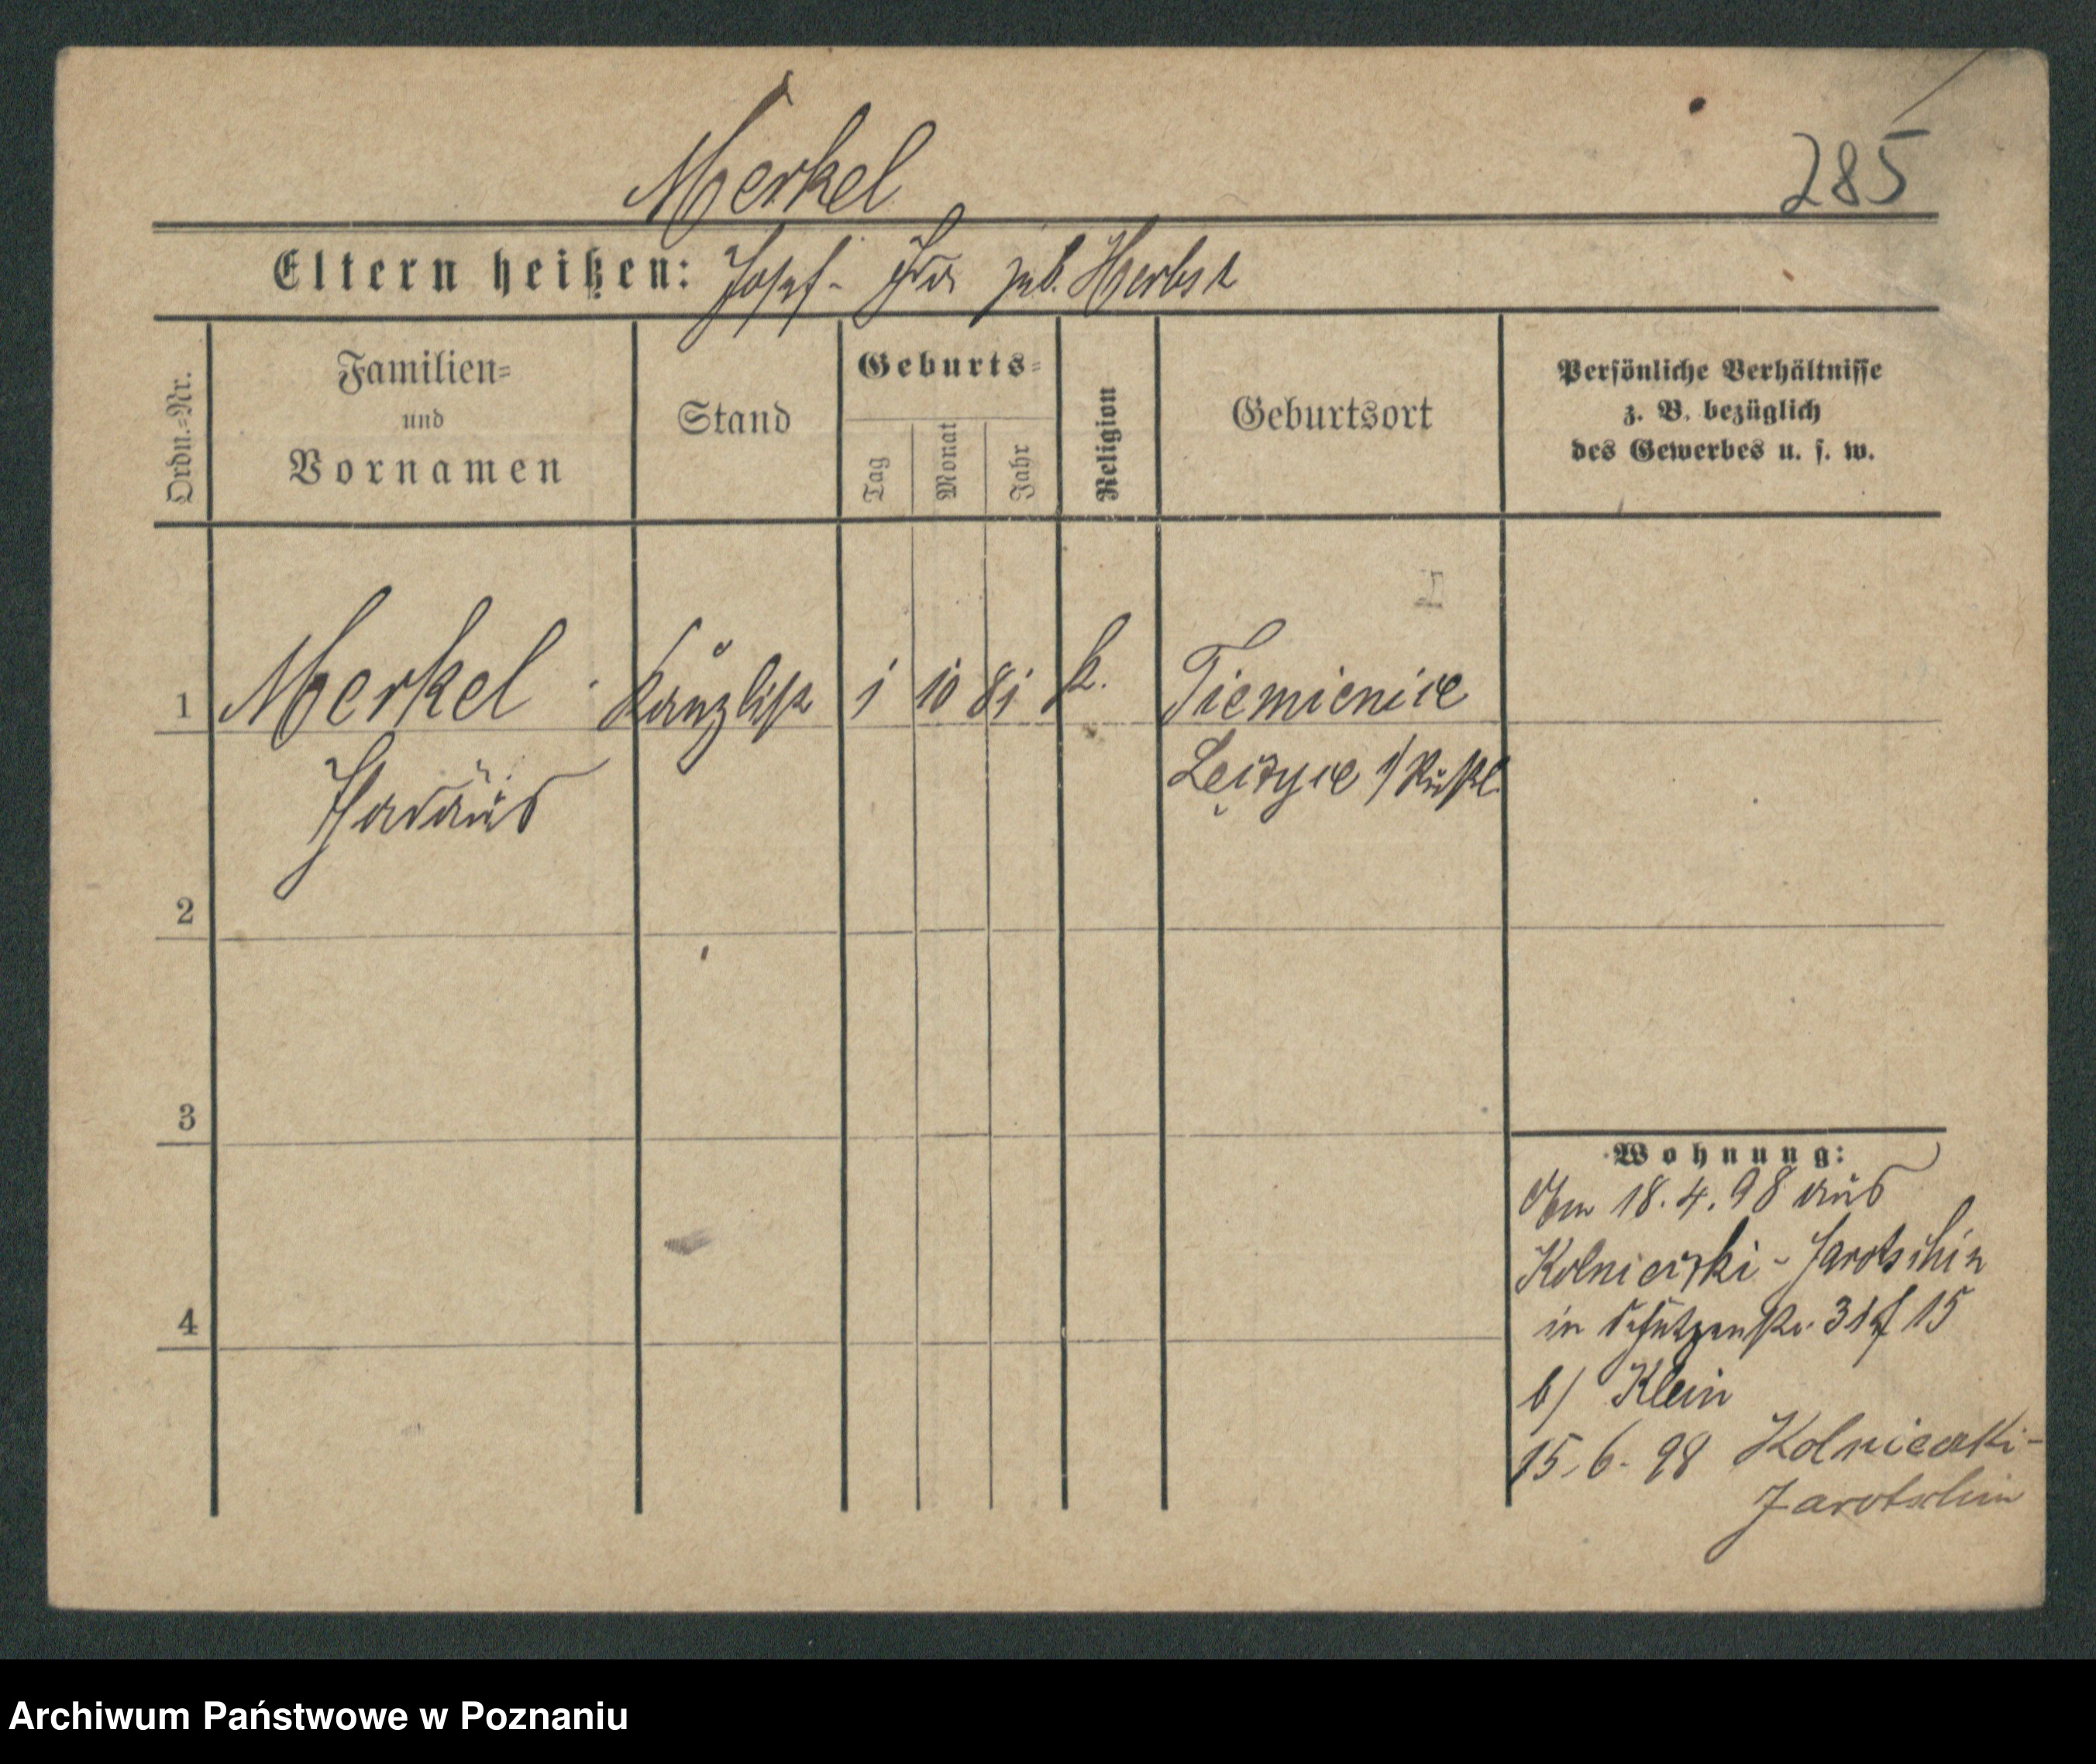 Merkel
285
Eltern heißen: Josef - Ida geb. Herbst
Ordn.=Nr.
Familien=
und
Vornamen
Stand
Geburts=
Tag
Monat
Jahr
Religion
Geburtsort
Persönliche Verhältnisse
z. B. bezüglich
des Gewerbes u. s. w.
1
Merkel
Kanzlist
1
10
81
k.
Tiemienice
Łęczyce / Rußl.
2
3
4
Wohnung:
Am 18.4.98 aus
Kolniczki - Jarotschin
in Schützenstr. 31 15
b/ Klein
15.6.98 Kolniczki -
Jarotschin
Archiwum Państwowe w Poznaniu